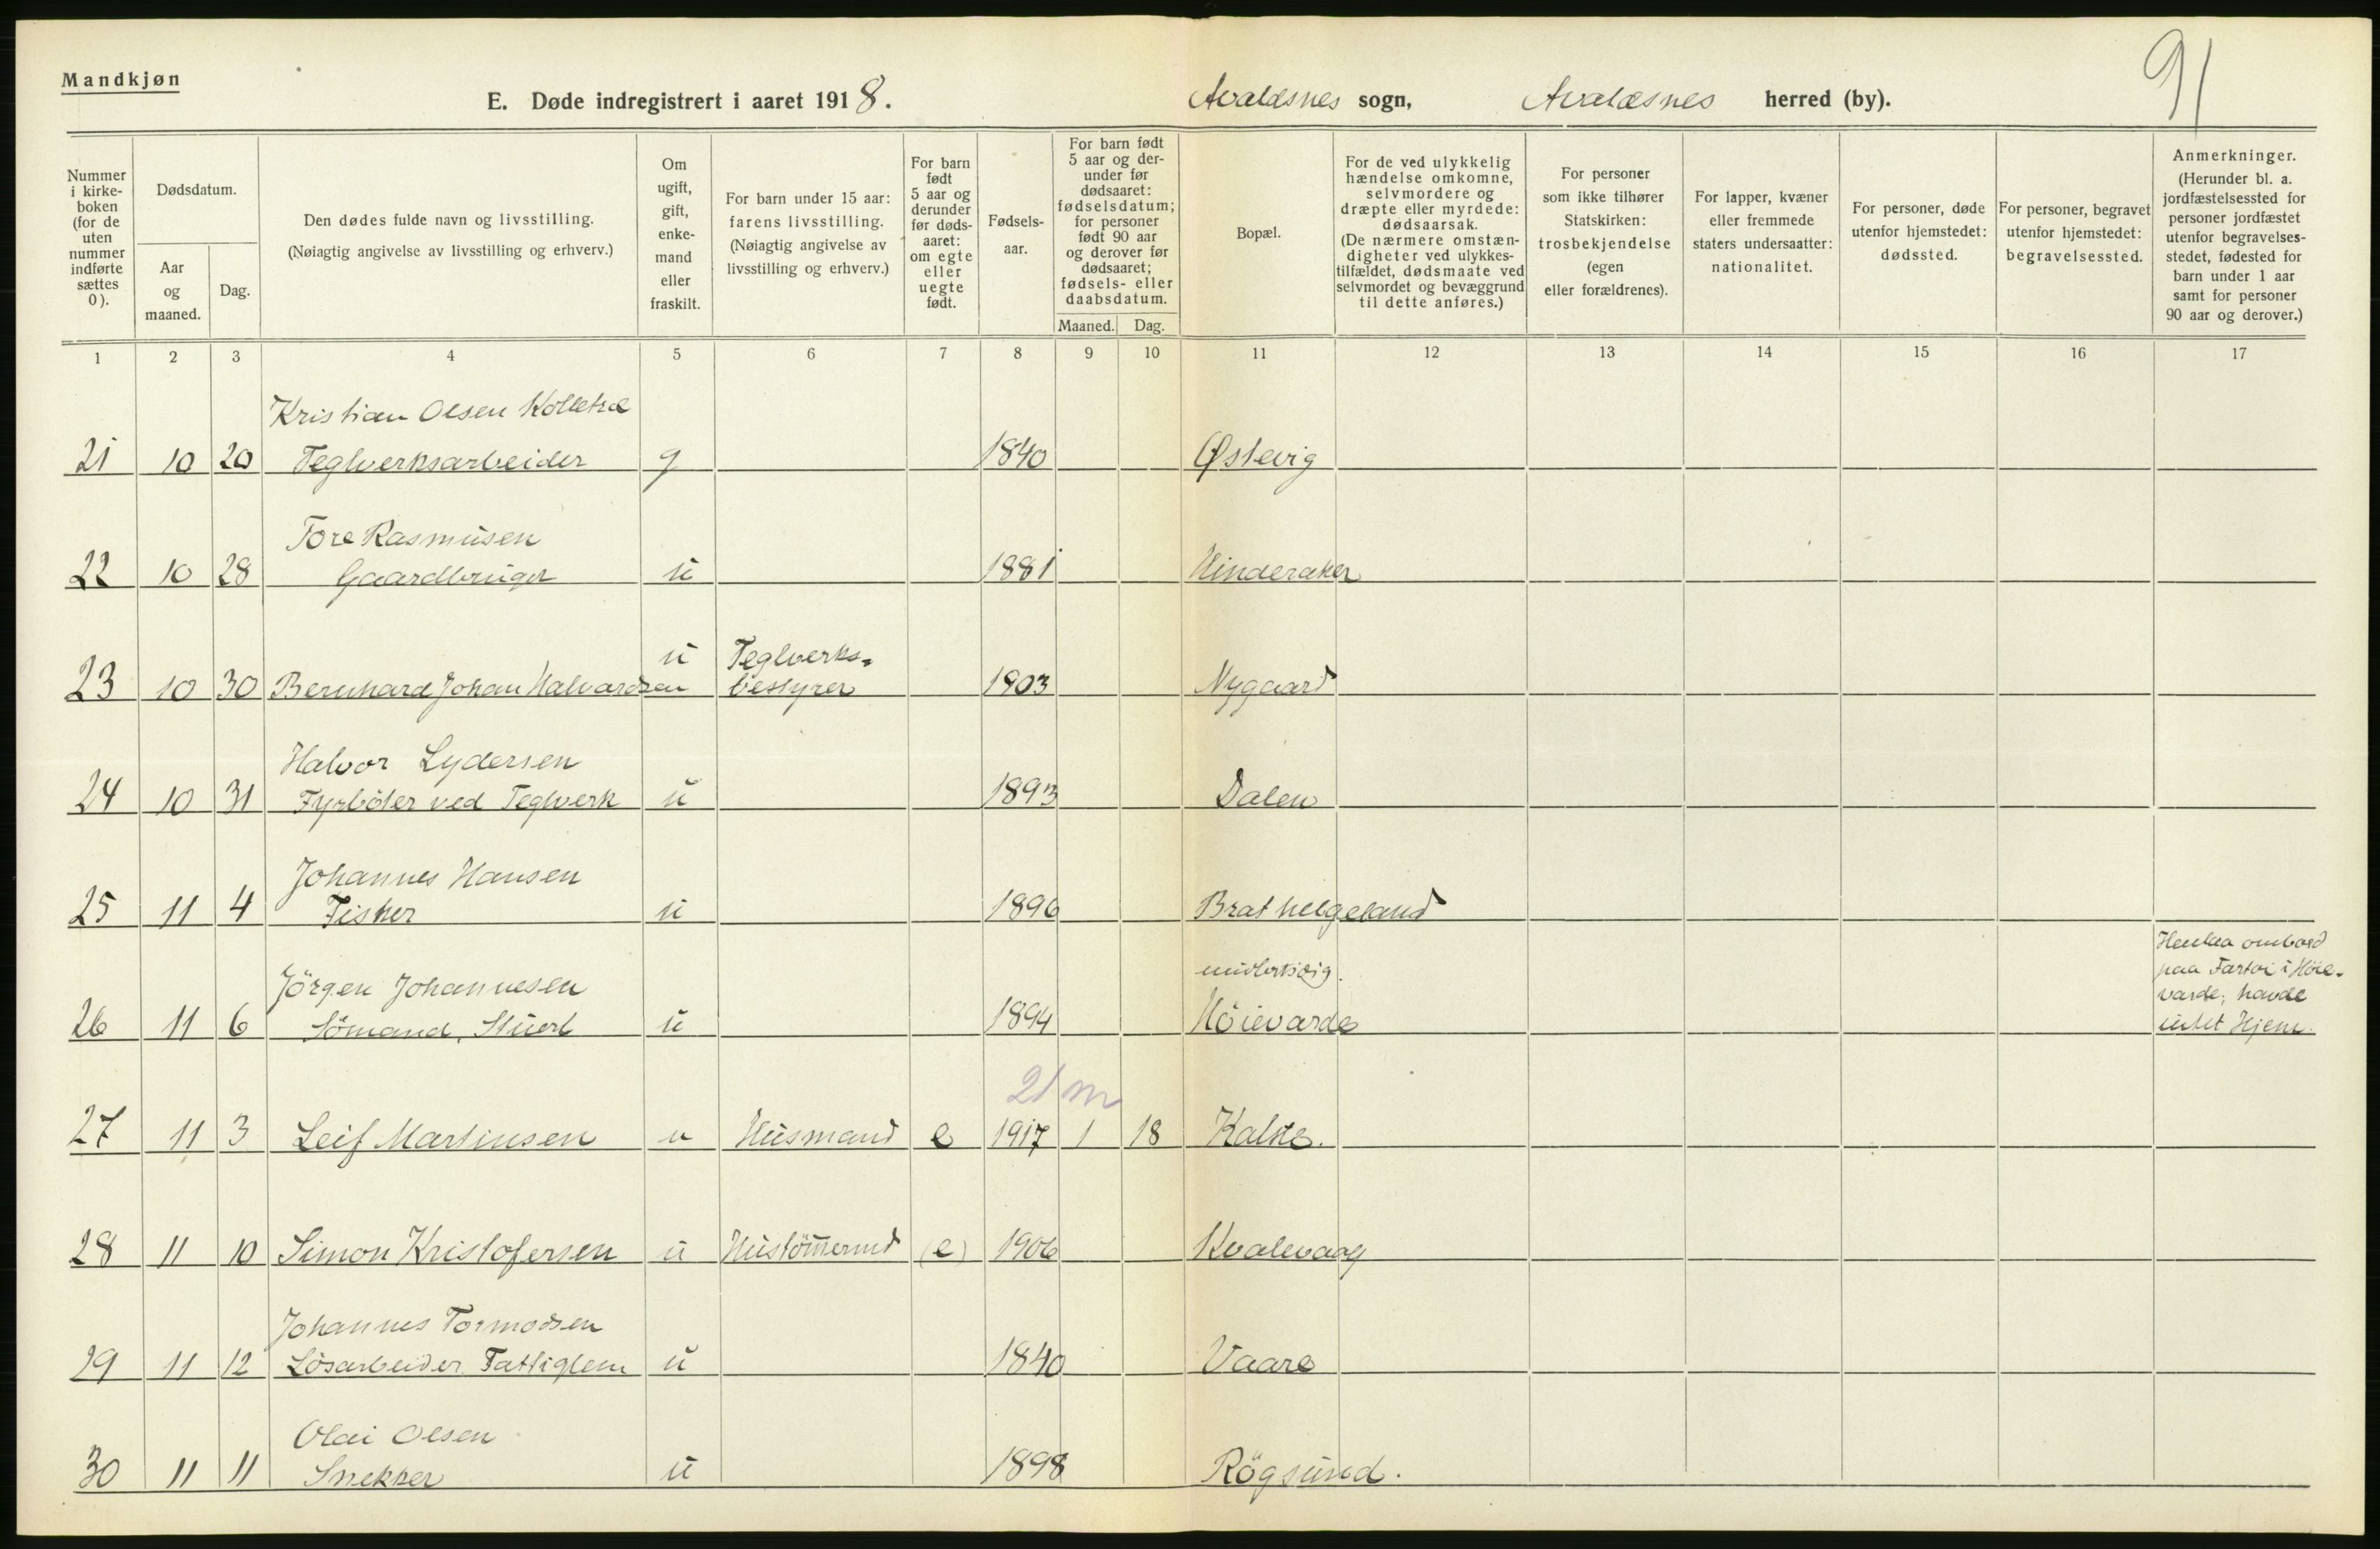 Mandkjøn
91
E. Døde indregistrert i aaret 1918. Avaldsnes sogn, Avaldsnes herred (by).
Nummer i kirke-boken (for de uten nummer indførte sættes 0).
Dødsdatum.
Aar og maaned.
Dag.
Den dødes fulde navn og livsstilling.
(Nøiagtig angivelse av livsstilling og erhverv.)
Om ugift, gift, enke-mand eller fraskilt.
For barn under 15 aar: farens livsstilling. (Nøiagtig angivelse av livsstilling og erhverv.)
For barn født 5 aar og derunder før døds-aaret: om egte eller uegte født.
Fødsels-aar.
For barn født 5 aar og der-under før dødsaaret: fødselsdatum; for personer født 90 aar og derover før dødsaaret; fødsels- eller daabsdatum.
Maaned. Dag.
Bopæl.
For de ved ulykkelig hændelse omkomne, selvmordere og dræpte eller myrdede: dødsaarsak. (De nærmere omstæn-digheter ved ulykkes-tilfældet, dødsmaate ved selvmordet og bevæggrund til dette anføres.)
For personer som ikke tilhører Statskirken: trosbekjendelse (egen eller forældrenes).
For lapper, kvæner eller fremmede staters undersaatter: nationalitet.
For personer, døde utenfor hjemstedet: dødssted.
For personer, begravet utenfor hjemstedet: begravelsessted.
Anmerkninger. (Herunder bl. a. jordfæstelsessted for personer jordfæstet utenfor begravelses-stedet, fødested for barn under 1 aar samt for personer 90 aar og derover.)
1 2 3 4 5 6 7 8 9 10 11 12 13 14 15 16 17
Kristian Olsen Kolletræ
21 10 20 Teglverksarbeider g 1840 Østevig
Tore Rasmusen
22 10 28 Gaardbruger u 1881 Hinderaker
u Teglverks-
23 10 30 Bernhard Johan Halvardsen bestyrer 1903 Nygaard
Halvor Lydersen
24 10 31 Fyrböter ved Teglverk u 1893 Dalen
Johannes Hansen
25 11 4 Fisker u 1896 Brathelgeland
Jörgen Johannesen midlertidig.
26 11 6 Sömand, Stuert u 1894 Höievarde
ombord
paa Fartöi i Höie-
varde; havde
intet Hjem.
21 m
27 11 3 Leif Martinsen u Husmand e 1917 1 18 Kalstø.
28 11 10 Simon Kristofersen u Hustömmermd (e) 1906 Kvalevaag
Johannes Tormodsen
29 11 12 Lösarbeider Fattiglem u 1840 Vaare
Olai Olsen
30 11 11 Snekker u 1898 Rögsund.